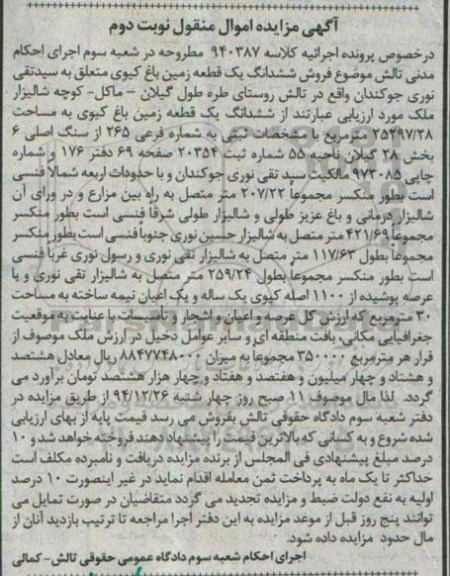 آگهی مزایده اموال منقول نوبت دوم
درخصوص پرونده اجرائیه کلاسه ۹۴۰۳۸۷ مطروحه در شعبه سوم اجرای احکام
مدنی تالش موضوع فروش ششدانگ یک قطعه زمین باغ کیوی متعلق به سیدتقی
نوری جوکندان واقع در تالش روستای طره طول گیلان – ماکل- کوچه شالیزار
ملک مورد ارزیابی عبارتند از ششدانگ یک قطعه زمین باغ کیوی به مساحت
۲۵۲۹۷/۲۸ مترمربع با مشخصات ثبتی به شماره فرعی ۲۶۵ از سنگ اصلی ۶
بخش ۲۸ گیلان ناحیه ۵۵ شماره ثبت ۲۰۳۵۴ صفحه ۶۹ دفتر ۱۷۶ و شماره
چاپی ۹۷۳۰۸۵ مالکیت سید تقی نوری جوکندان و با حدودات اربعه شمالا فنسی
است بطور منکسر مجموعا ۲۰۷/۲۲ متر متصل به راه بین مزارع و در ورای آن
شالیزار درمانی و باغ عزیز طولی و شالیزار طولی شرقا فنسی است بطور منکسر
مجموعا ۴۲۱/۶۹ متر متصل به شالیزار حسین نوری جنوبا فنسی است بطور منکسر
مجموعا بطول ۱۱۷/۶۳ متر متصل به شالیزار تقی نوری و رسول نوری غربا فنسی
است بطور منکسر مجموعا بطول ۲۵۹/۲۴ متر متصل به شالیزار تقی نوری و با
عرصه پوشیده از ۱۱۰۰ اصله کیوی یک ساله و یک اعیان نیمه ساخته به مساحت
۳۰ مترمربع که ارزش کل عرصه و اعیان و اشجار و تأسیسات با عنایت به موقعیت
جغرافیایی مکانی، بافت منطقه ای و سایر عوامل دخیل در ارزش ملک موصوف از
قرار هر مترمربع ۳۵۰۰۰۰ مجموعا به میزان ۸۸۴۷۷۴۸۰۰۰ ریال معادل هشتصد
و هشتاد و چهار میلیون و هفتصد و هفتاد و چهار هزار هشتصد تومان برآورد می
گردد. لذا مال موصوف ۱۱ صبح روز چهار شنبه ۹۴/۱۲/۲۶ از طریق مزایده در
دفتر شعبه سوم دادگاه حقوقی تالش بفروش می رسد قیمت پایه از بهای ارزیابی
شده شروع و به کسانی که بالاترین قیمت را پیشنهاد دهند فروخته خواهد شد و ۱۰
درصد مبلغ پیشنهادی فی المجلس از برنده مزایده دریافت و نامبرده مکلف است
حداکثر تا یک ماه به پرداخت ثمن معامله اقدام نماید در غیر اینصورت ۱۰ درصد
اولیه به نفع دولت ضبط و مزایده تجدید می گردد متقاضیان در صورت تمایل می
توانند پنج روز قبل از موعد مزایده به این دفتر اجرا مراجعه تا ترتیب بازدید آنان از
مال حدود مزایده داده شود.
اجرای احکام شعبه سوم دادگاه عمومی حقوقی تالش- کمالی